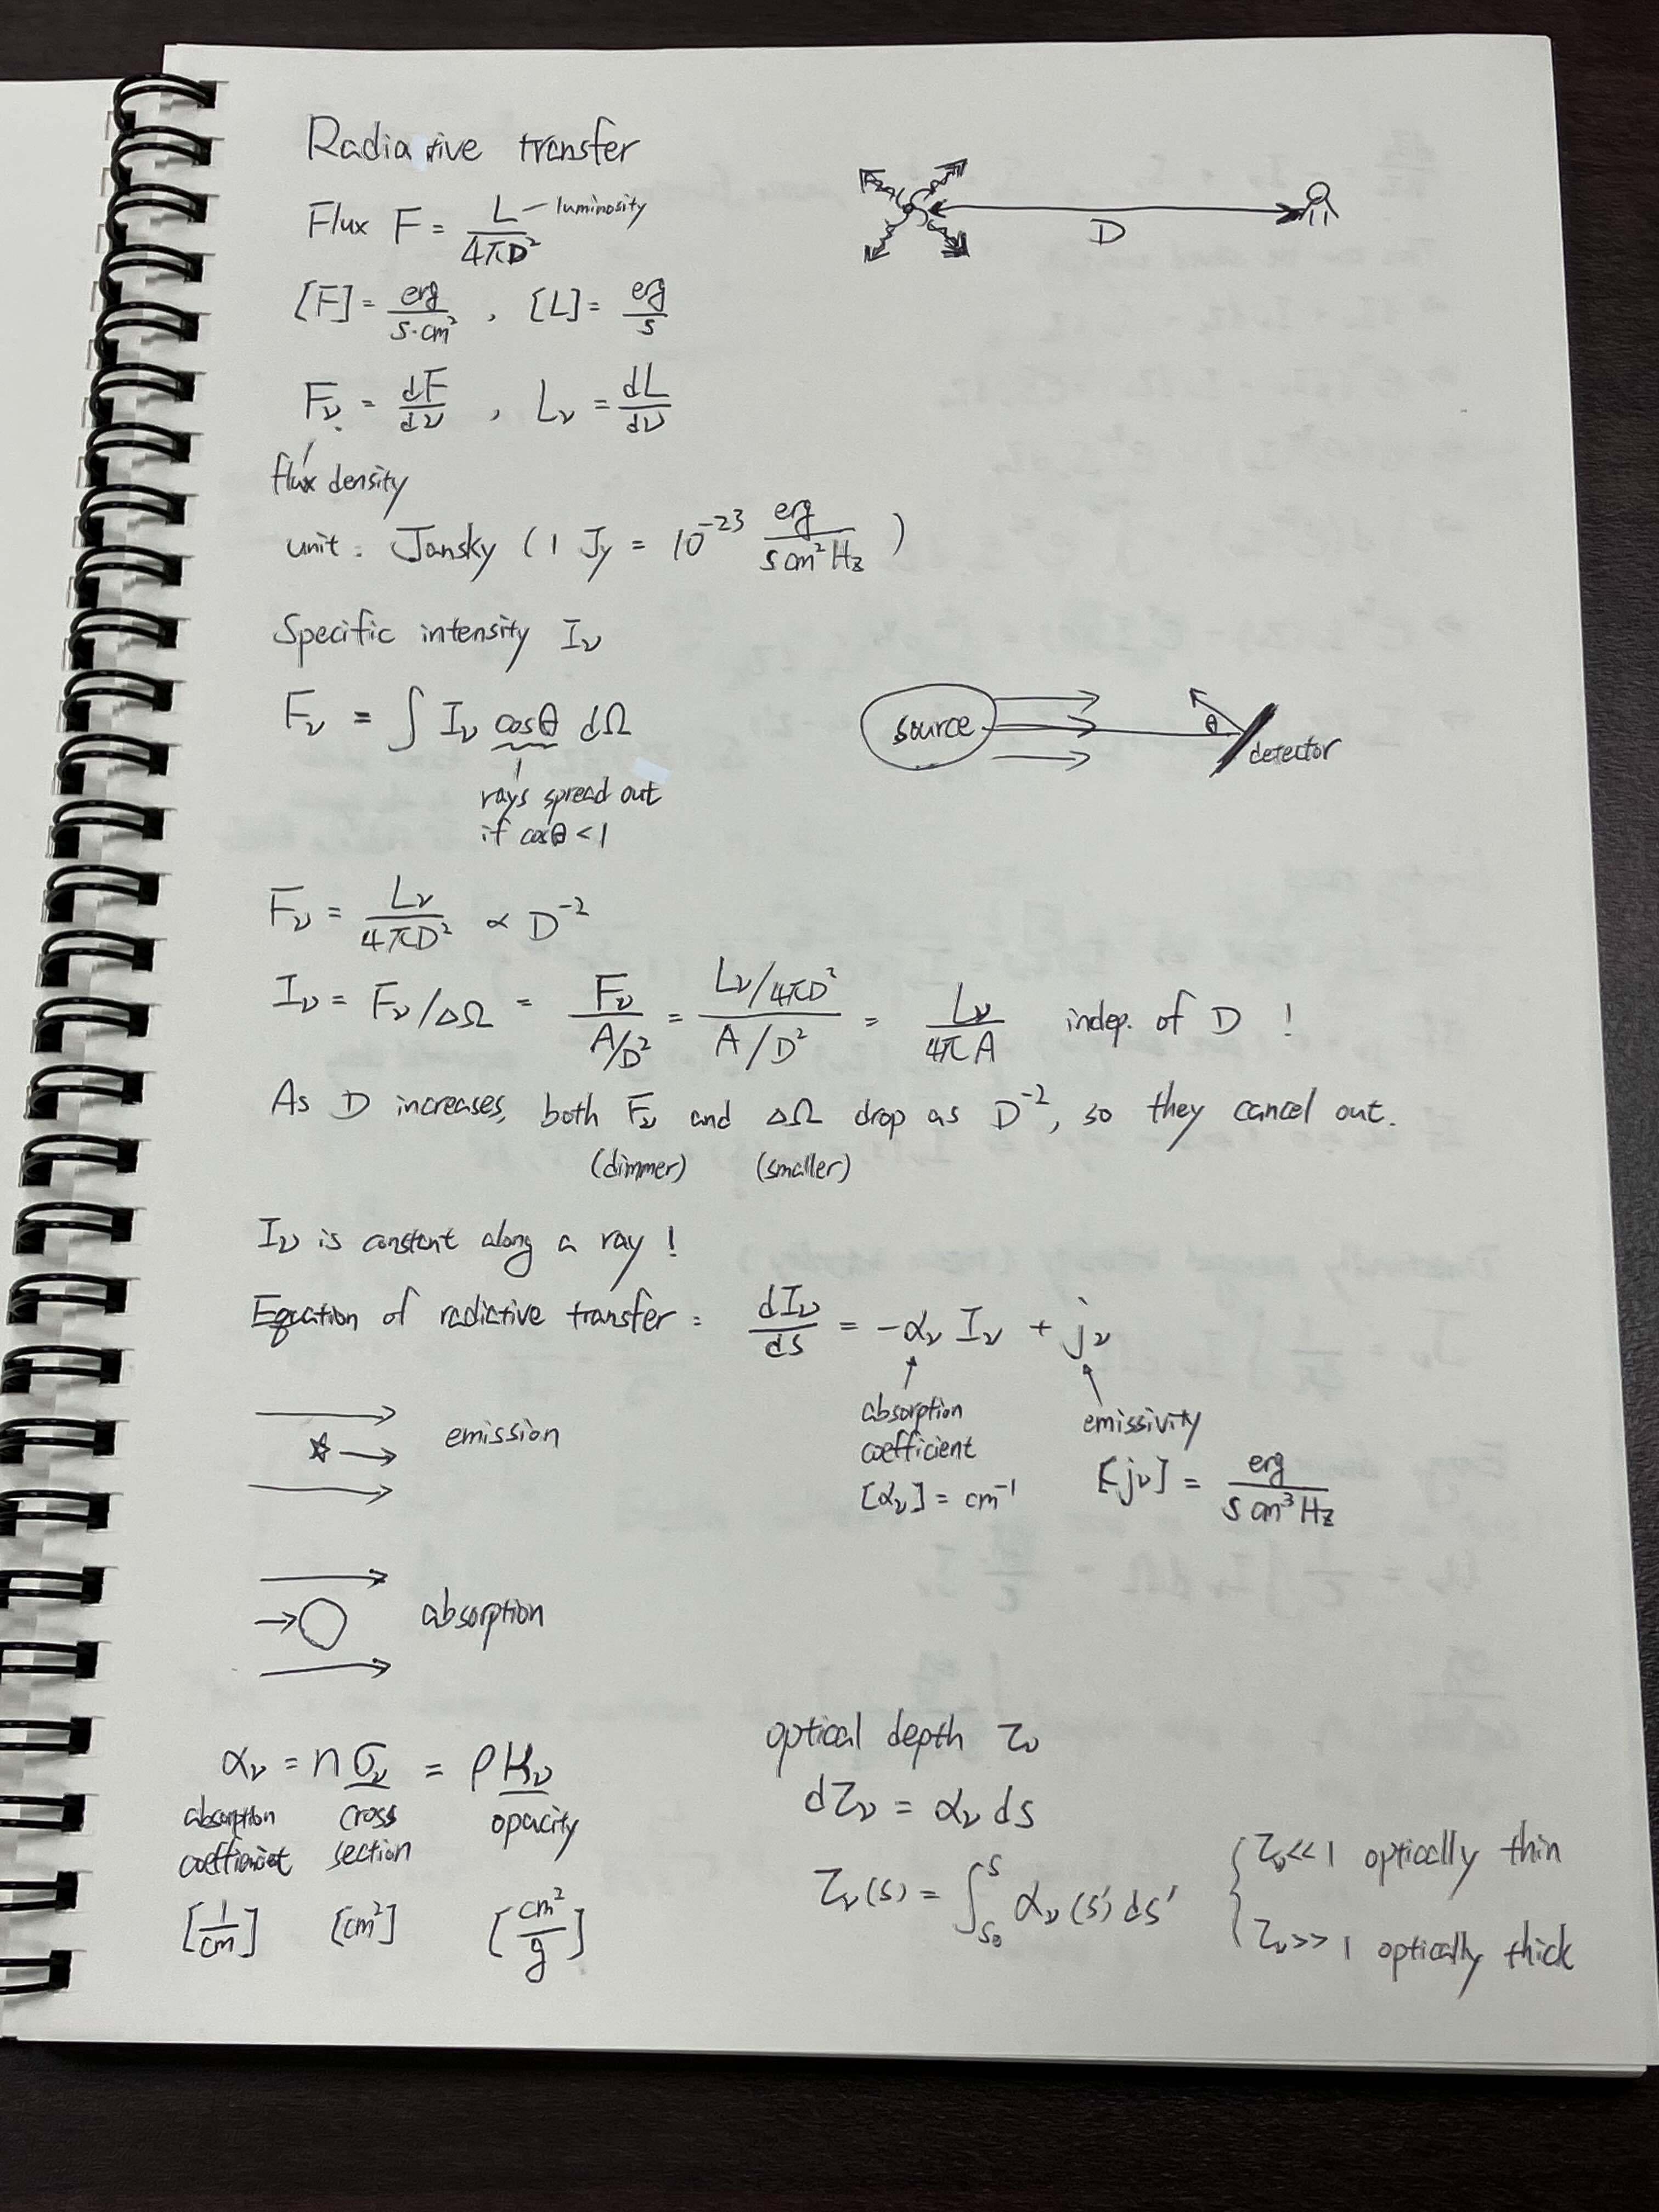 Radiative transfer
Flux F = L/4πD² — luminosity
D
[F] = erg/s·cm² , [L] = erg/s
F_ν = dF/dν , L_ν = dL/dν
flux density
unit: Jansky (1 Jy = 10^-23 erg/s cm² Hz)
Specific intensity I_ν
F_ν = ∫ I_ν cosθ dΩ
source θ detector
rays spread out
if cosθ < 1
F_ν = L_ν/4πD² ∝ D^-2
I_ν = F_ν/ΔΩ = F_ν/(A/D²) = (L_ν/4πD²)/(A/D²) = L_ν/4πA indep. of D !
As D increases, both F_ν and ΔΩ drop as D^-2, so they cancel out.
(dimmer) (smaller)
I_ν is constant along a ray !
Equation of radiative transfer : dI_ν/ds = -α_ν I_ν + j_ν
absorption
coefficient
[α_ν] = cm^-1
emissivity
[j_ν] = erg/s cm³ Hz
emission
absorption
α_ν = n σ_ν = ρ κ_ν
absorption
coefficient
cross
section
opacity
[1/cm] [cm²] [cm²/g]
optical depth τ_ν
dτ_ν = α_ν ds
τ_ν(s) = ∫_{s₀}^{s} α_ν(s') ds'
{ τ_ν << 1 optically thin
τ_ν >> 1 optically thick